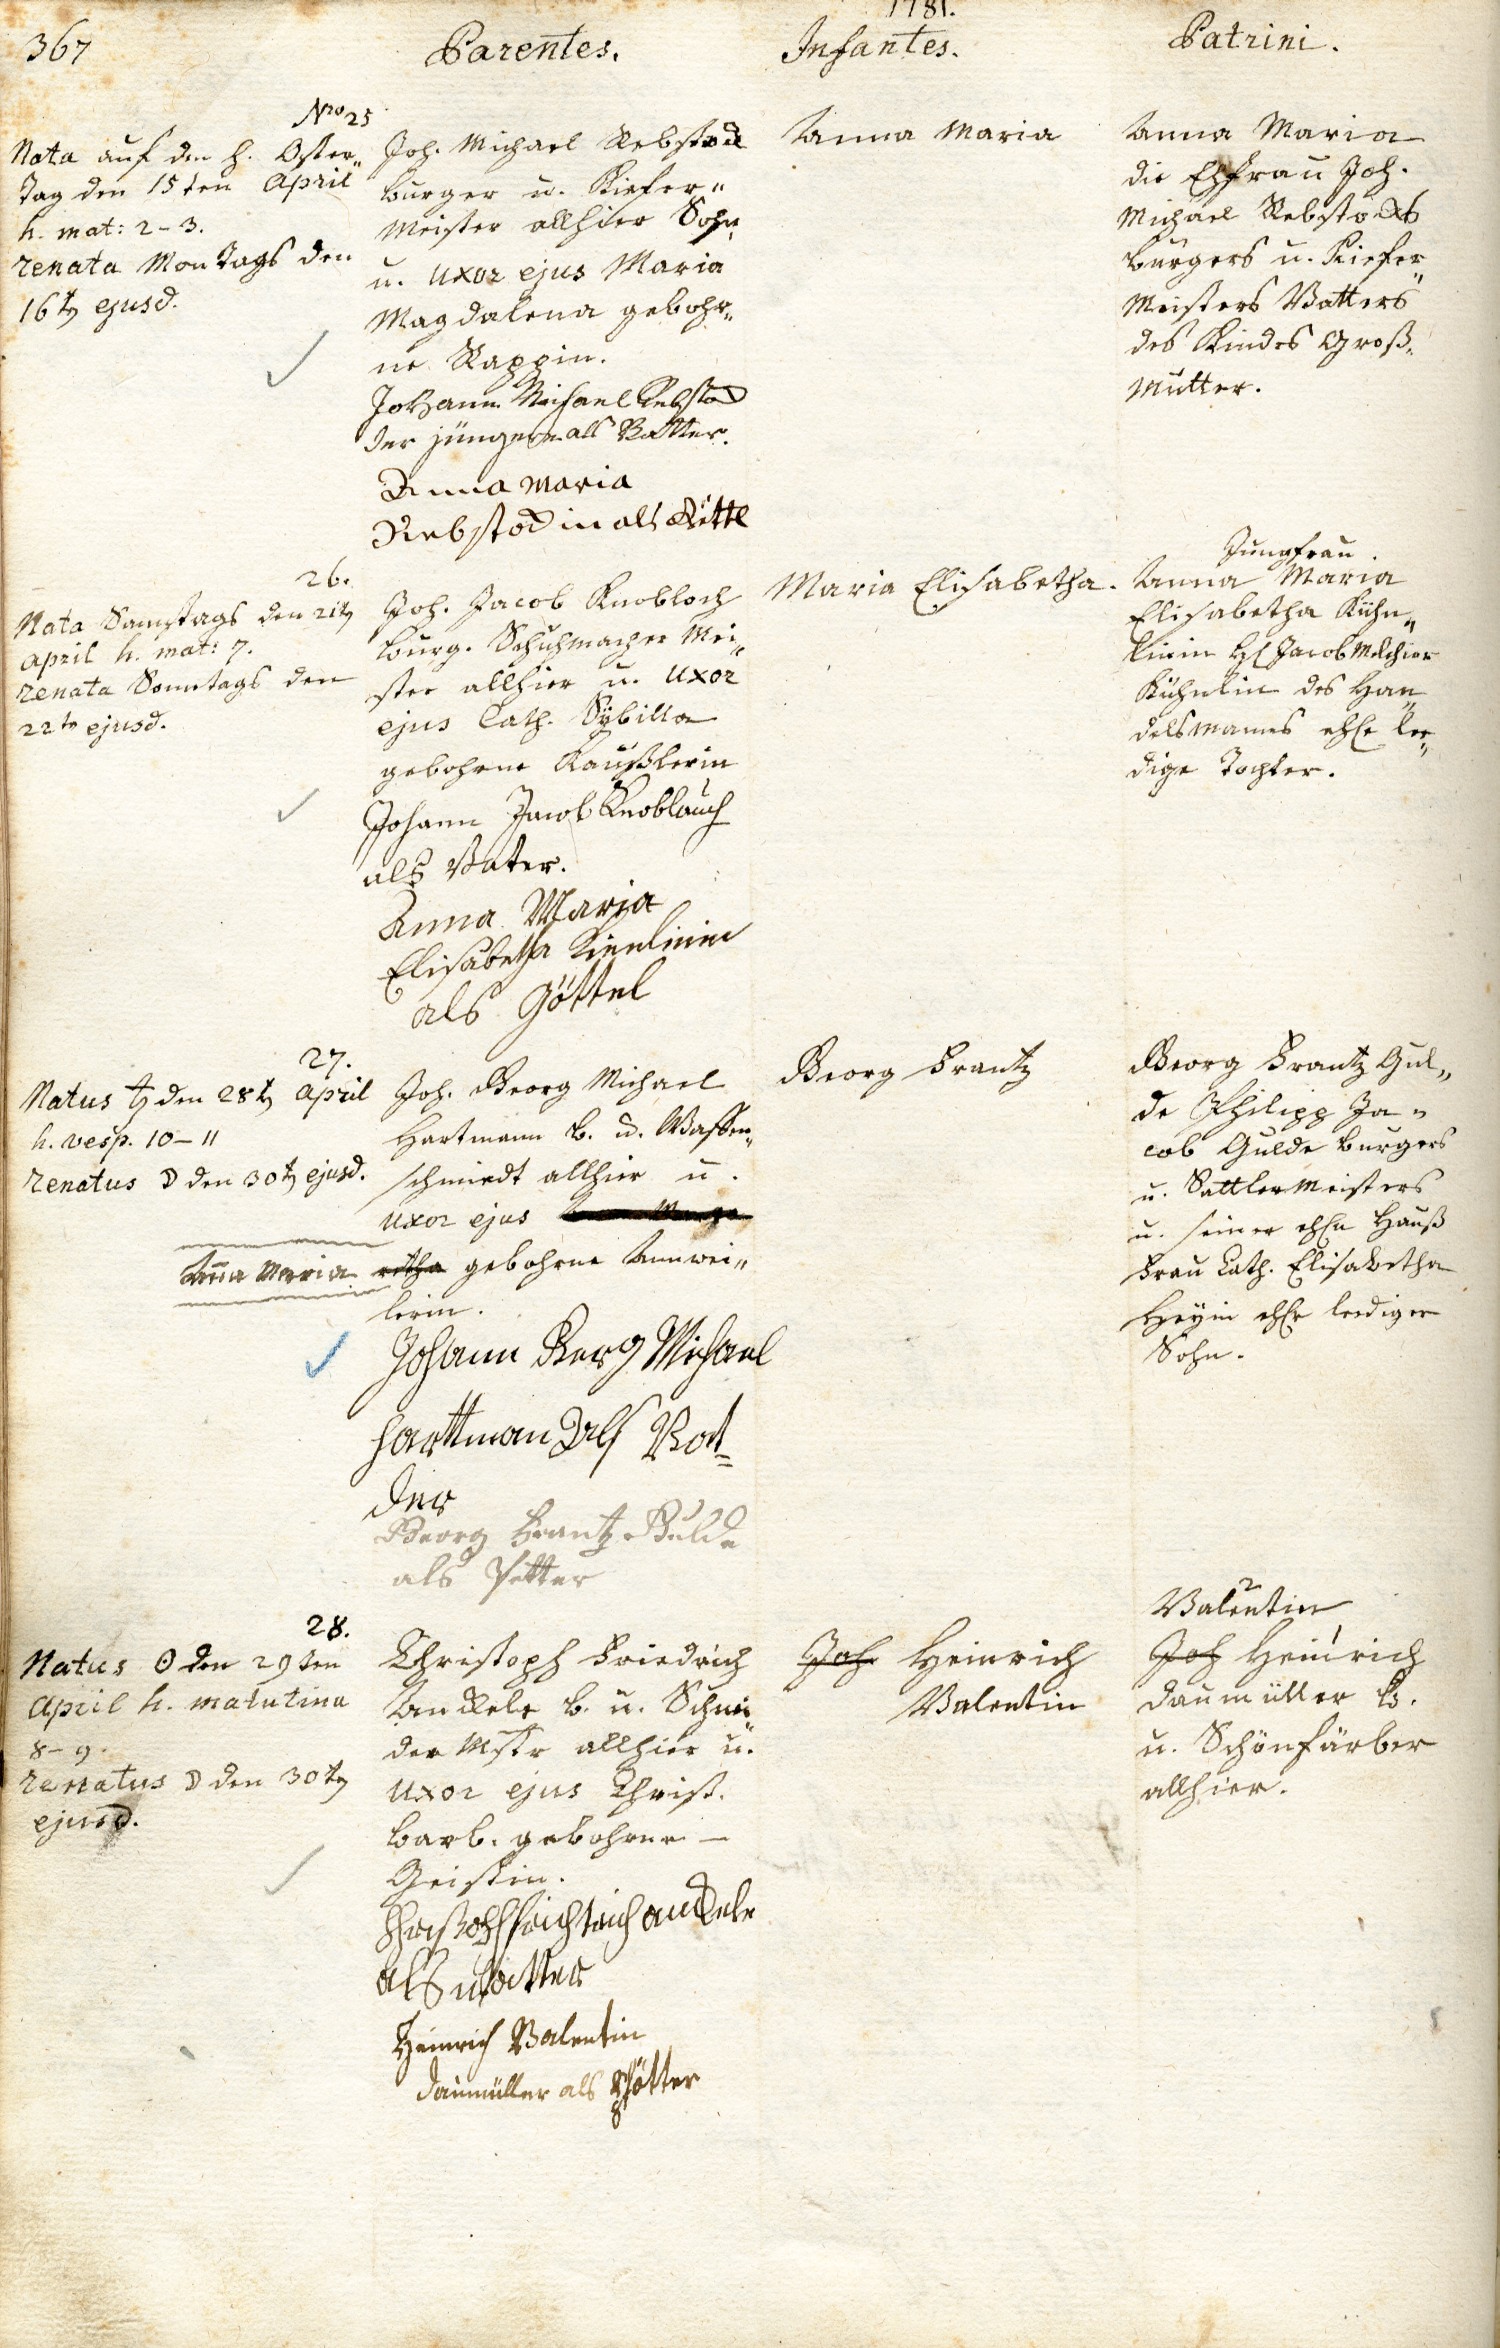 1781.
367
Parentes.
Infantes.
Patrini.
Nro 25
Nata auf den h. Oster„
Tag den 15ten April
h. mat: 2-3.
renata Montags den
16t ejusd.
Joh. Michael Rebstock
burger u. Kiefer„
Meister allhier Sohn
u. uxor ejus Maria
Magdalena gebohr„
ne Rappin.
Johann Michael Rebstock
der jüngere als Vatter.
Anna Maria
Rebstockin als
Anna Maria
Anna Maria
die Ehfrau Joh.
Michael Rebstocks
burgers u. Kiefer„
Meisters Vatters
des Kindes Groß„
Mutter.
26.
Nata Samstags den 21t
April h. mat: 7.
renata Sonntags den
22t ejusd.
Joh. Jacob Knobloch
burg. Schuhmacher Mei„
ster allhier u. uxor
ejus Cath. Sÿbilla
gebohrne Kaußlerin
Johann Jacob Knoblauch
als Vater.
Anna Maria
Elisabetha Kienlinin
als Göttel
Maria Elisabetha.
Jungfrau
Anna Maria
Elisabetha Kühn„
linin H Jacob Melchior
Kühnlin des Han„
delsmannes ehl le„
dige Tochter.
27.
Natus ♄ den 28t April
h. vesp. 10-11
renatus ☽ den 30t ejusd.
Joh. Georg Michael
Hartmann b. u. Waffen„
schmiedt allhier u.
uxor ejus
Aña Maria
retha gebohrne Annwei„
lerin.
Johann Georg Michael
Harttman Als Vat„
der
Georg Frantz Gulde
als Petter
Georg Frantz
Georg Frantz Gul„
de Philipp Ja„
cob Gulde burgers
u. Sattler Meisters
u. seiner ehln Hauß
Frau Cath. Elisabetha
Heÿin ehlr lediger
Sohn.
28.
Natus ☉ den 29ten
April h. matutina
8-9.
renatus ☽ den 30t
ejusd.
Christoph Friedrich
Anckele b. u. Schnei„
der Mstr allhier u.
uxor ejus Christ.
barb. gebohrne –
Geistin.
anckele
als Vatter
Heinrich Valentin
Daumüller als Pfötter
Joh Heinrich
Valentin
2
Valentin
1
Joh Heinrich
Daumüller b.
u. Schönfärber
allhier.